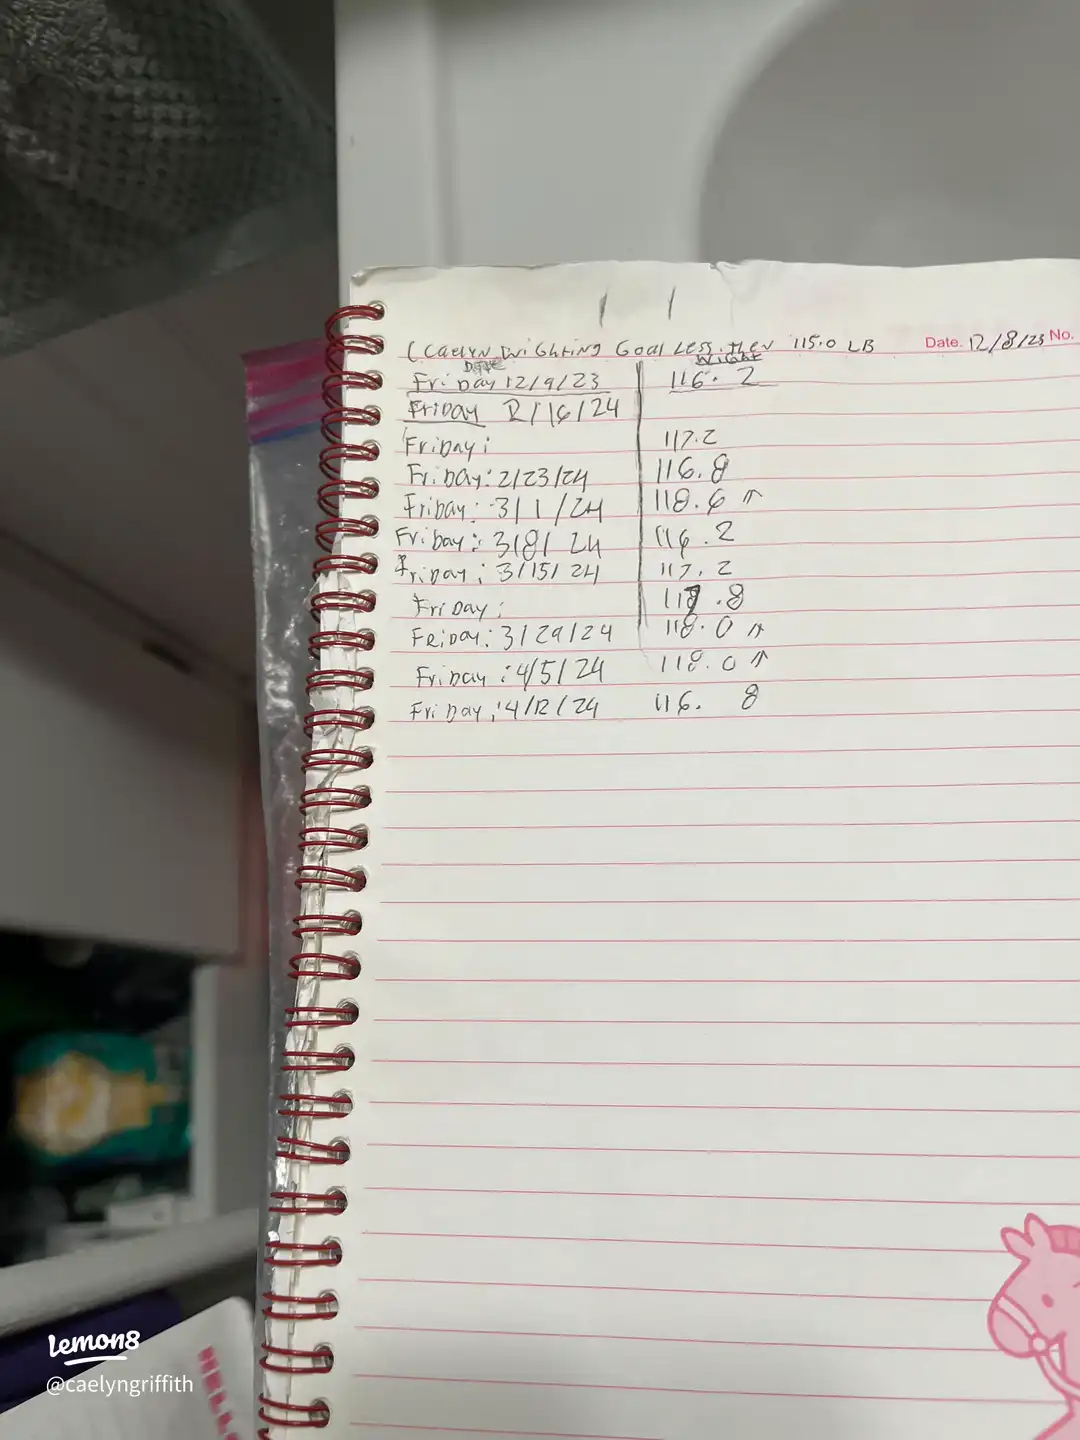 (Caelyn Wrighting Goal Less then 115.0 LB Date. 12/8/23 No.
Date Wight
Friday 12/9/23 116.2
Friday 2/16/24
Friday: 117.2
Friday: 2/23/24 116.8
Friday: 3/1/24 118.6 ↑
Friday: 3/8/24 116.2
Friday: 3/15/24 117.2
Friday: .8
Friday: 3/29/24 118.0 ↑
Friday: 4/5/24 118.0 ↑
Friday: 4/12/24 116. 8
Lemon8
@caelyngriffith